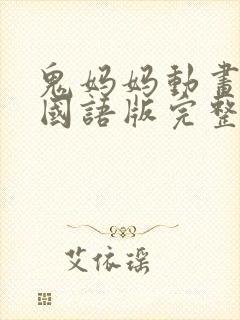 鬼妈妈動畫
國語版完整
艾依瑶